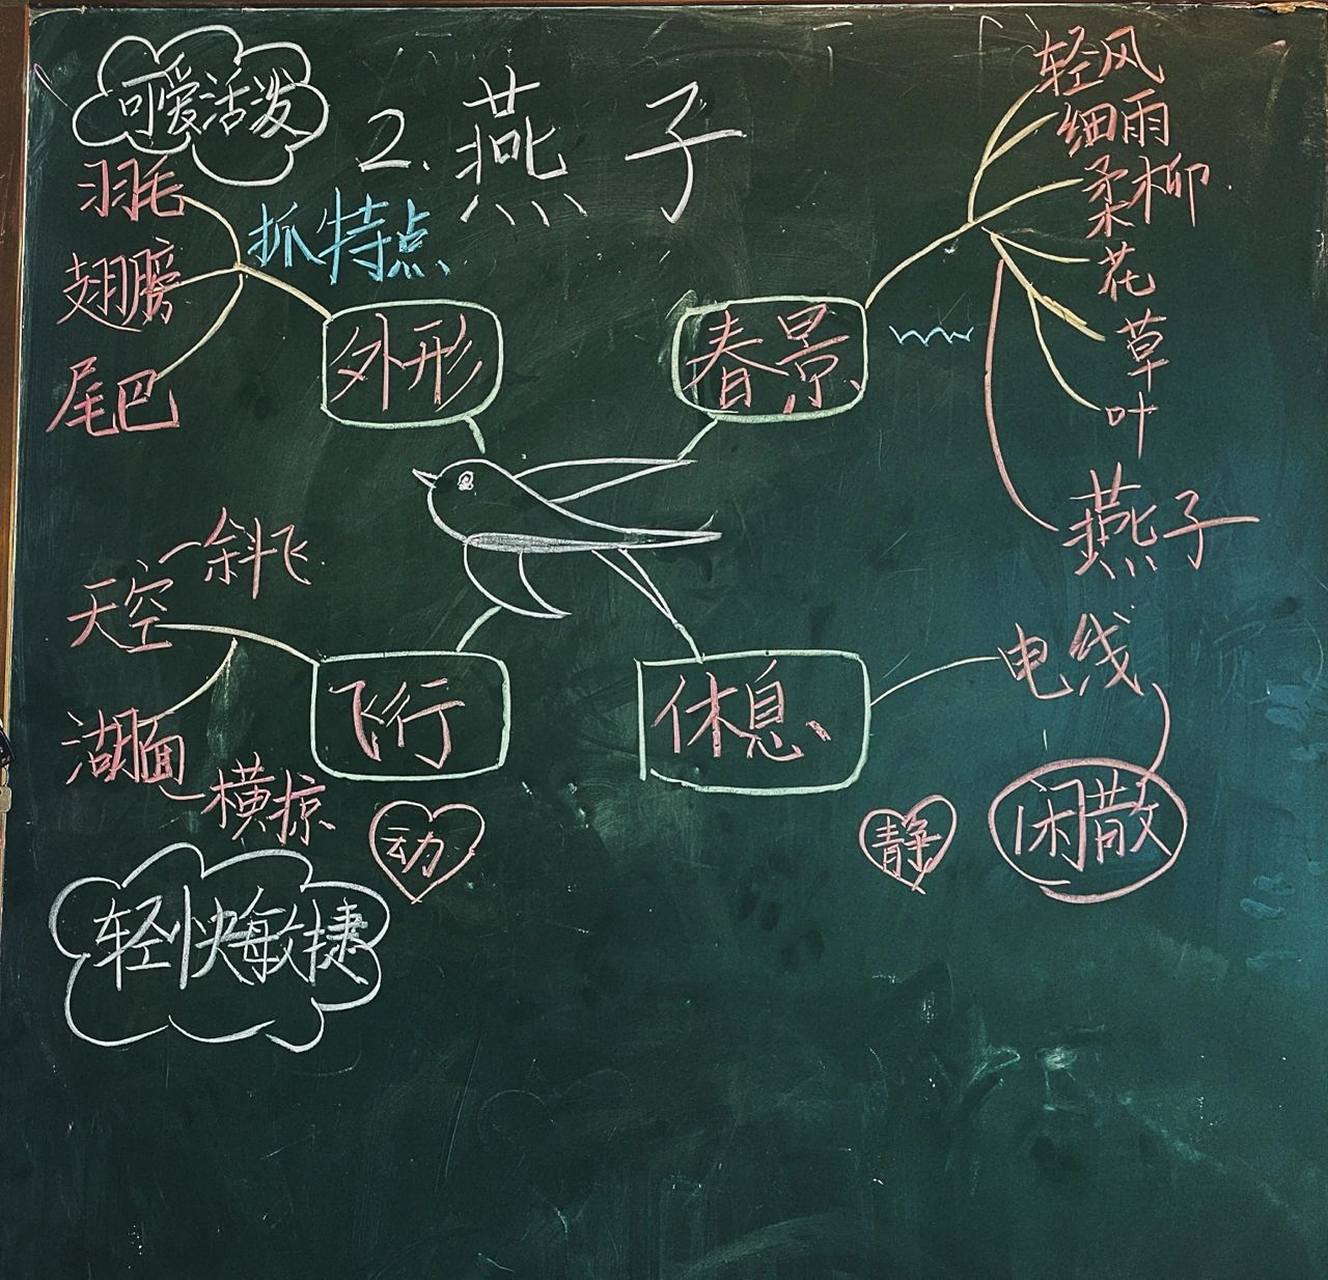 2. 燕子
可爱活泼
羽毛
翅膀
尾巴
抓特点
外形
春景
轻风
细雨
柔柳
花
草
叶
燕子
天空
斜飞
湖面
横掠
飞行
动
轻快敏捷
休息
电线
闲散
静